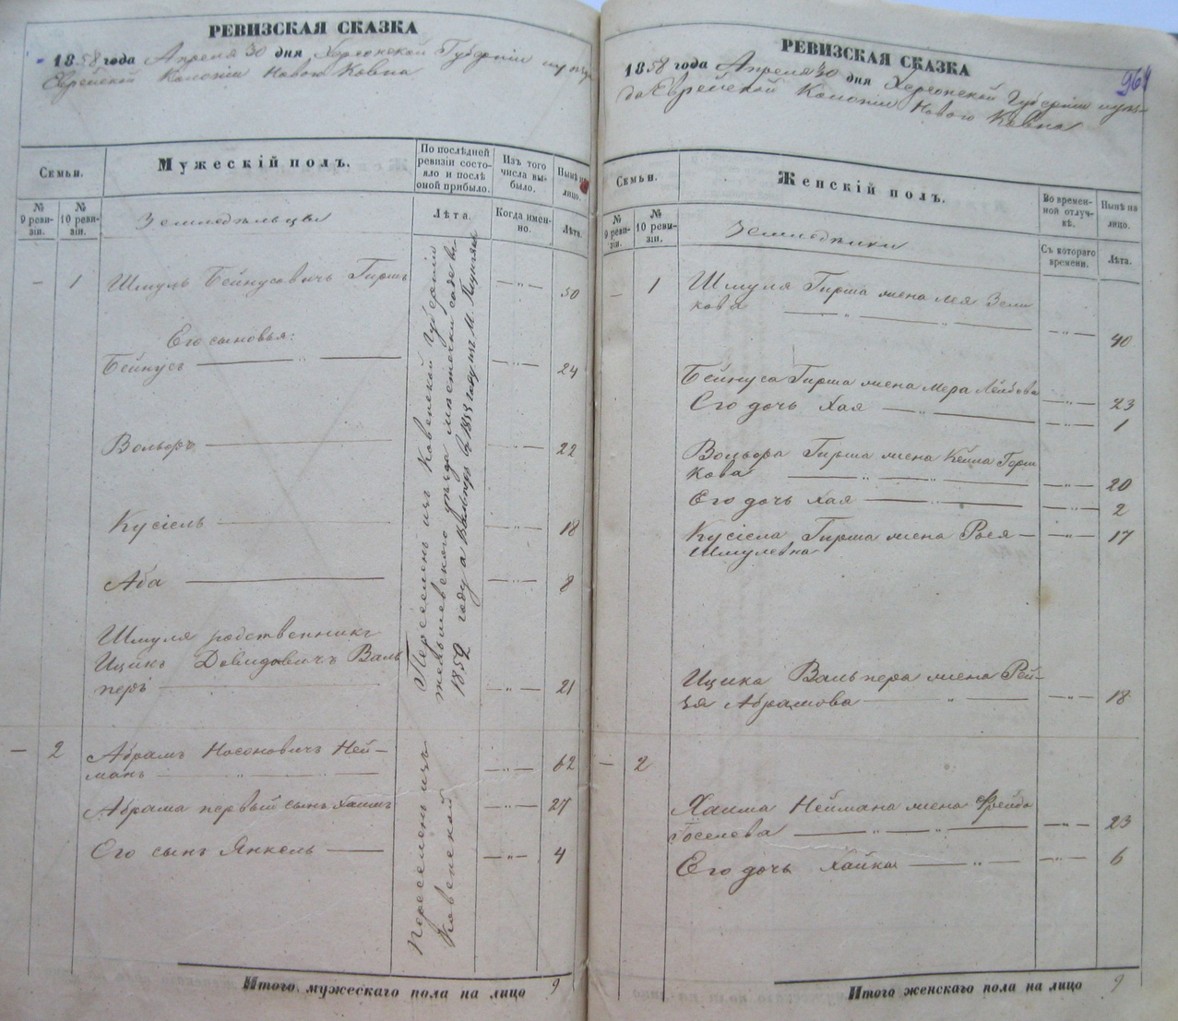 РЕВИЗСКАЯ СКАЗКА
1858 года Апреля 30 дня Херсонской Губерніи
Еврейской Колоніи Новой Ковна
Семьи.
Мужескій полъ.
По послѣдней ревизіи состояло и послѣ оной прибыло.
Изъ того числа выбыло.
Нынѣ на лицо.
№ 9 ревизіи.
№ 10 ревизіи.
Земледѣльцы
Лѣта.
Когда именно.
Лѣта.
— 1 Шмуль Бейнусовичъ Гиршъ — „ — 50
Его сыновья:
Бейнусъ — „ — 24
Вольфъ — „ — 22
Кусіель — „ — 18
Аба — „ — 8
Шмуля родственникъ
Ицикъ Довидовичъ Валь
перъ — „ — 21
Переселенъ изъ Ковенской Губерніи
уѣзда мѣстечка
1852 году а Вальперъ въ 1853 году изъ М.
— 2 Абрамъ Носоновичъ Ней-
манъ — „ — 62
Абрама первый сынъ Хаимъ 27
Его сынъ Янкель — „ — 4
Переселенъ изъ
Ковенской
Итого мужескаго пола на лицо 9
РЕВИЗСКАЯ СКАЗКА
1858 года Апреля 30 дня Херсонской Губерніи
Еврейской Колоніи Новой Ковна
96
Семьи.
Женскій полъ.
Во временной отлучкѣ.
Нынѣ на лицо.
№ 9 ревизіи.
№ 10 ревизіи.
Земледѣлки
Съ котораго времени.
Лѣта.
— 1 Шмуля Гирша жена Лея Зели
кова — „ — 40
Бейнуса Гирша жена Мера Лейбова — „ — 23
Его дочь Хая — „ — 1
Вольфа Гирша жена Кейла Герш
кова — „ — 20
Его дочь Хая — „ — 2
Кусіеля Гирша жена Рося — „ — 17
Шмулевна
Ицика Вальпера жена Рей-
зя Абрамова — „ — 18
— 2
Хаима Неймана жена Фрейда
Іоселева — „ — 23
Его дочь Хайка — „ — 6
Итого женскаго пола на лицо 9